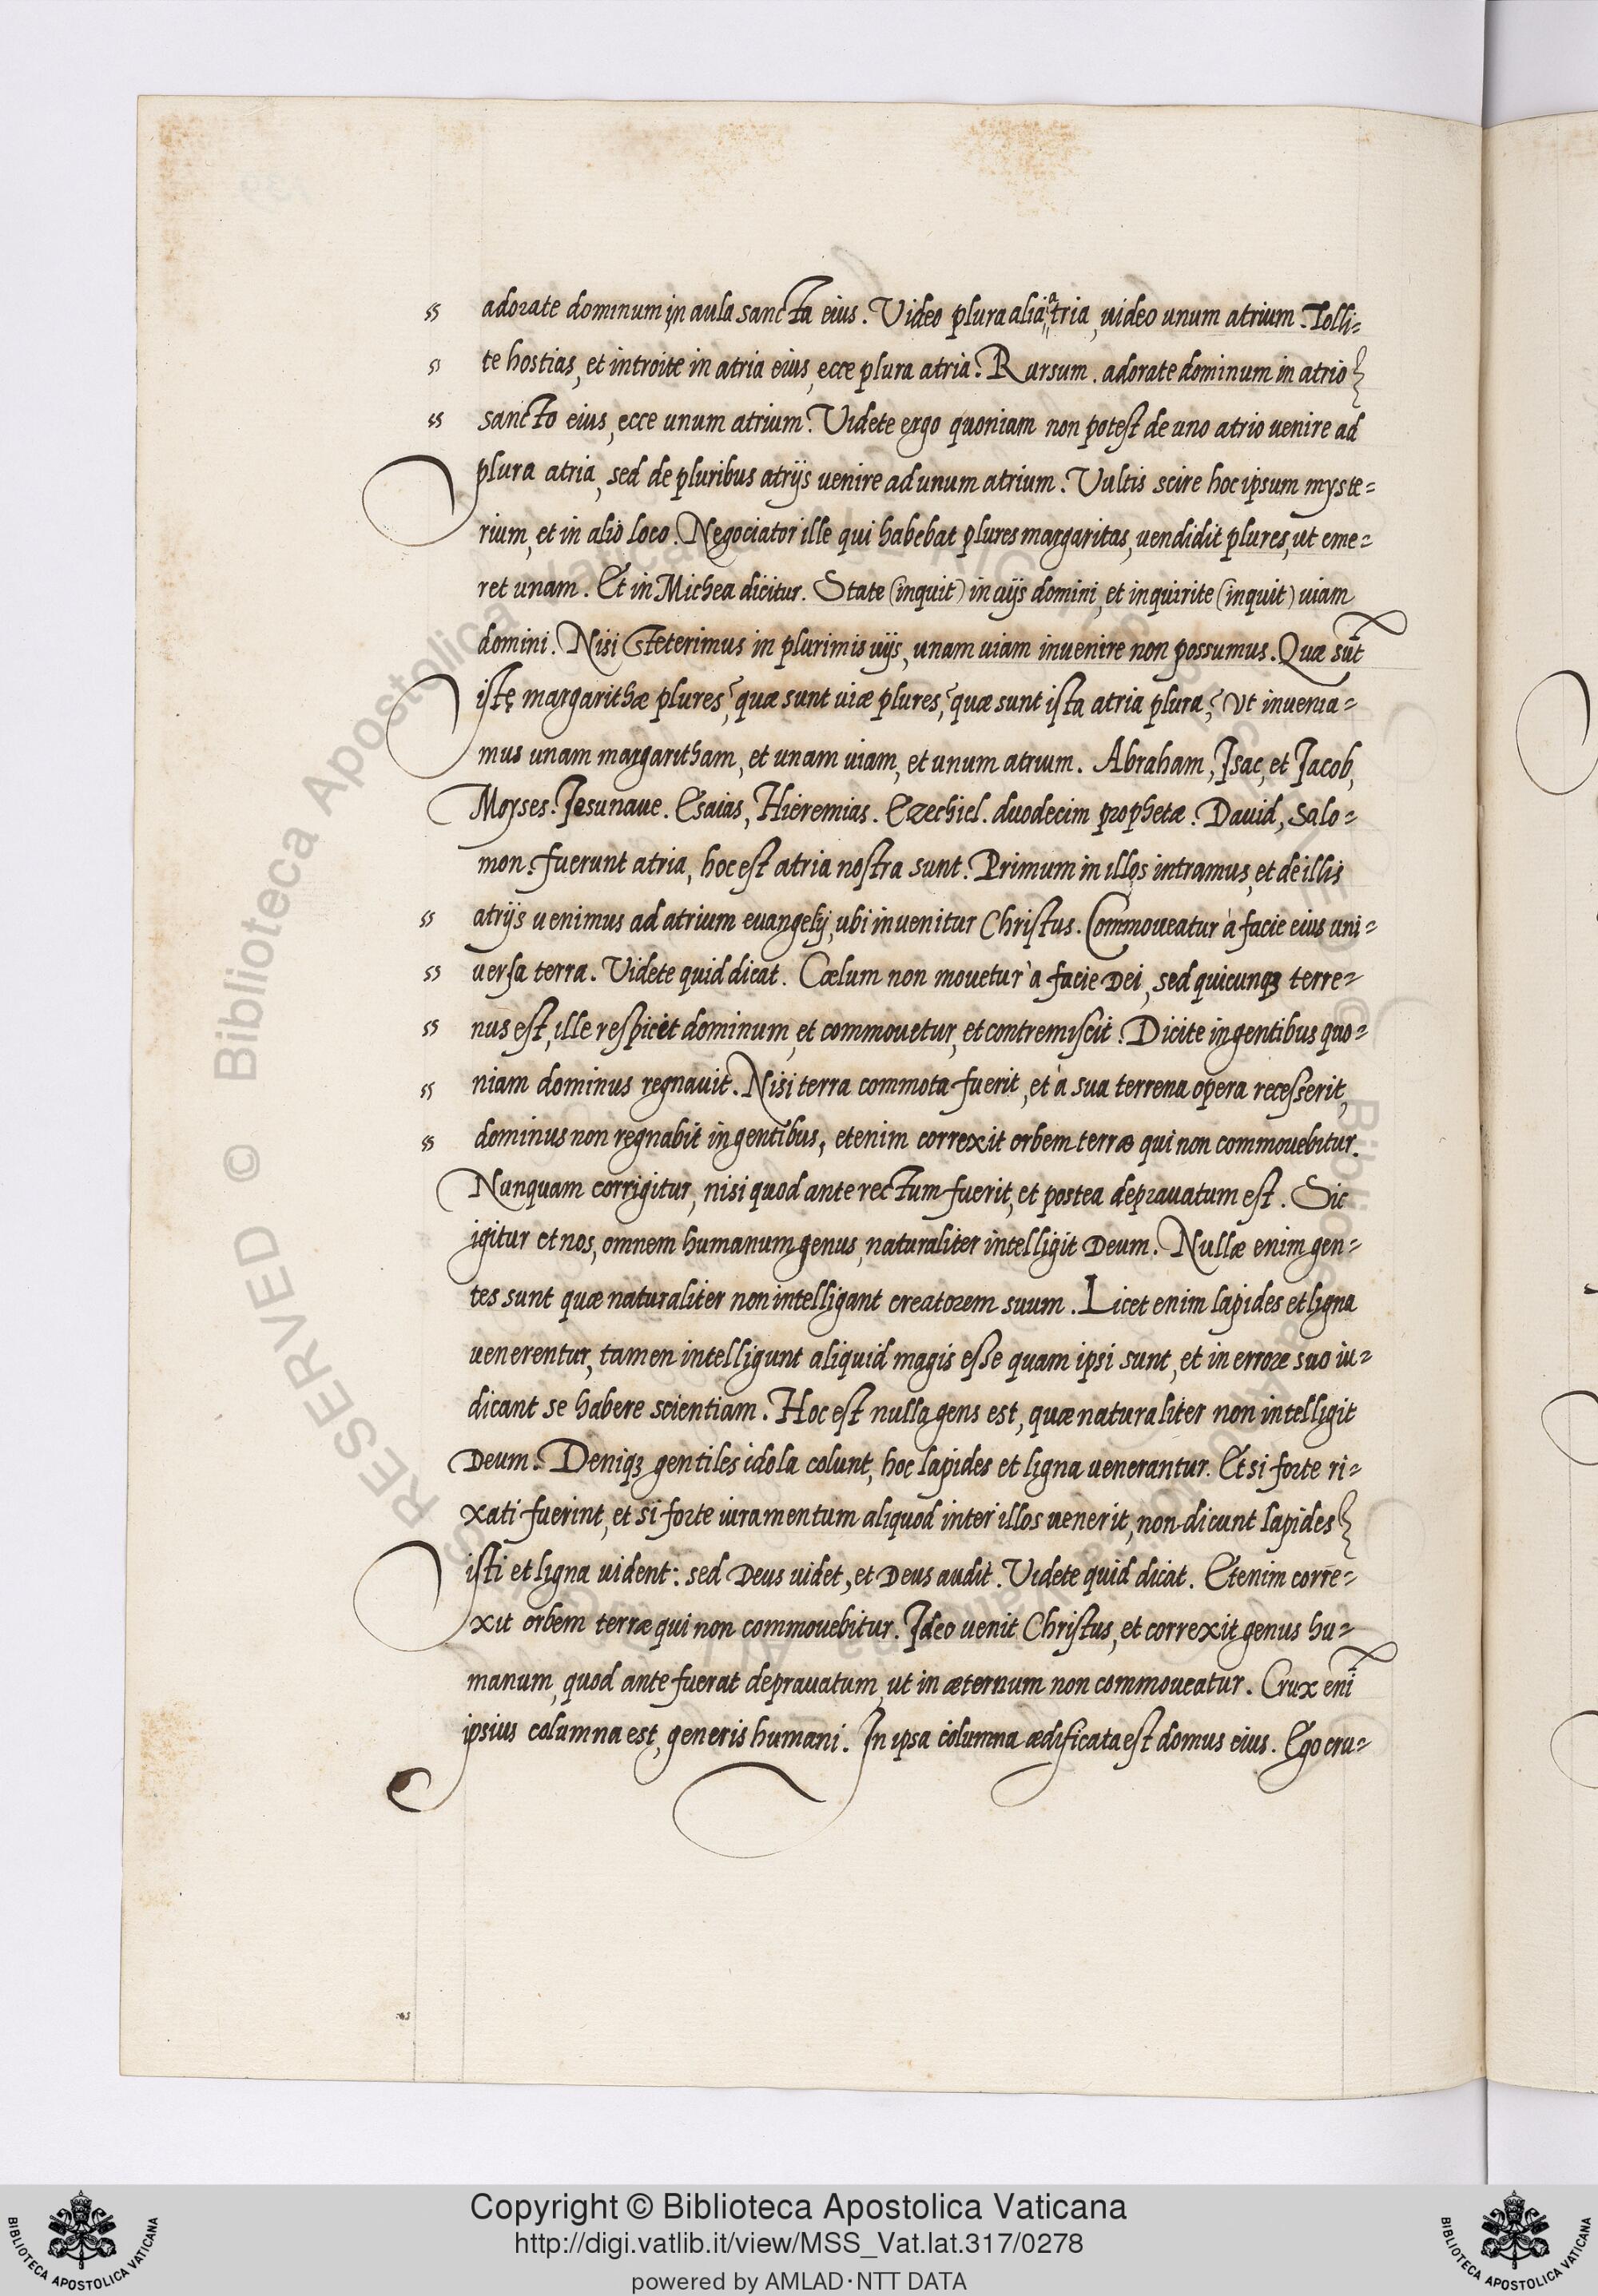 adorate dominum in aula sancta eius. Video plura alia atria, uideo unum atrium. Tolli=
te hostias, et introite in atria eius, ecce plura atria. Rursum. adorate dominum in atrio
sancto eius, ecce unum atrium. Videte ergo quoniam non potest de uno atrio uenire ad
plura atria, sed de pluribus atrijs uenire ad unum atrium. Vultis scire hoc ipsum myste=
rium, et in alio loco. Negociator ille qui habebat plures margaritas, uendidit plures, ut eme=
ret unam. Et in Michea dicitur. State (inquit) in uijs domini, et inquirite (inquit) uiam
domini. Nisi steterimus in plurimis uijs, unam uiam inuenire non possumus. Quæ sūt
istę margarithæ plures? quæ sunt uiæ plures? quæ sunt ista atria plura? Vt inuenia=
mus unam margaritham, et unam uiam, et unum atrium. Abraham, Isac, et Jacob,
Moyses. Jesunaue. Esaias, Hieremias. Ezechiel. duodecim prophetæ. Dauid, Salo=
mon. fuerunt atria, hoc est atria nostra sunt. Primum in illos intramus, et de illis
atrijs uenimus ad atrium euangelij, ubi inuenitur Christus. Commoueatur à facie eius uni=
uersa terra. Videte quid dicat. Cælum non mouetur à facie Dei, sed quicunqꝫ terre=
nus est, ille respicit dominum, et commouetur, et contremiscit. Dicite in gentibus quo=
niam dominus regnauit. Nisi terra commota fuerit, et à sua terrena opera recesserit,
dominus non regnabit in gentibus, etenim correxit orbem terræ qui non commouebitur.
Nunquam corrigitur, nisi quod ante rectum fuerit, et postea deprauatum est. Sic
igitur et nos, omnem humanum genus, naturaliter intelligit Deum. Nullæ enim gen=
tes sunt quæ naturaliter non intelligant creatorem suum. Licet enim lapides et ligna
uenerentur, tamen intelligunt aliquid magis esse quam ipsi sunt, et in errore suo iu=
dicant se habere scientiam. Hoc est nulla gens est, quæ naturaliter non intelligit
Deum. Deniqꝫ gentiles idola colunt, hoc lapides et ligna uenerantur. Et si forte ri=
xati fuerint, et si forte iuramentum aliquod inter illos uenerit, non dicunt lapides
isti et ligna uident: sed Deus uidet, et Deus audit. Videte quid dicat. Etenim corre=
xit orbem terræ qui non commouebitur. Ideo uenit Christus, et correxit genus hu=
manum, quod ante fuerat deprauatum, ut in æternum non commoueatur. Crux eni̅
ipsius columna est, generis humani. In ipsa columna ædificata est domus eius. Ego cru=
© Biblioteca Apostolica Vaticana
Copyright © Biblioteca Apostolica Vaticana
http://digi.vatlib.it/view/MSS_Vat.lat.317/0278
powered by AMLAD·NTT DATA
BIBLIOTECA APOSTOLICA VATICANA
BIBLIOTECA APOSTOLICA VATICANA